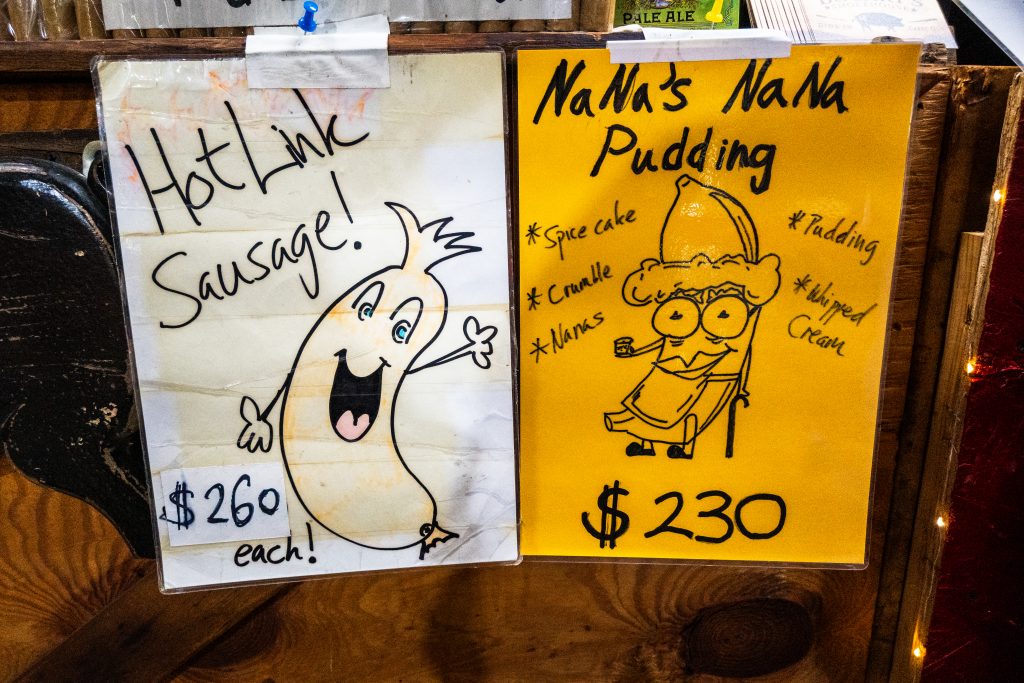 PALE ALE
Hot Link
Sausage!
$260
each!
NaNa's NaNa
Pudding
*Spice cake
*Crumble
*Nanas
*Pudding
*Whipped
Cream
$230